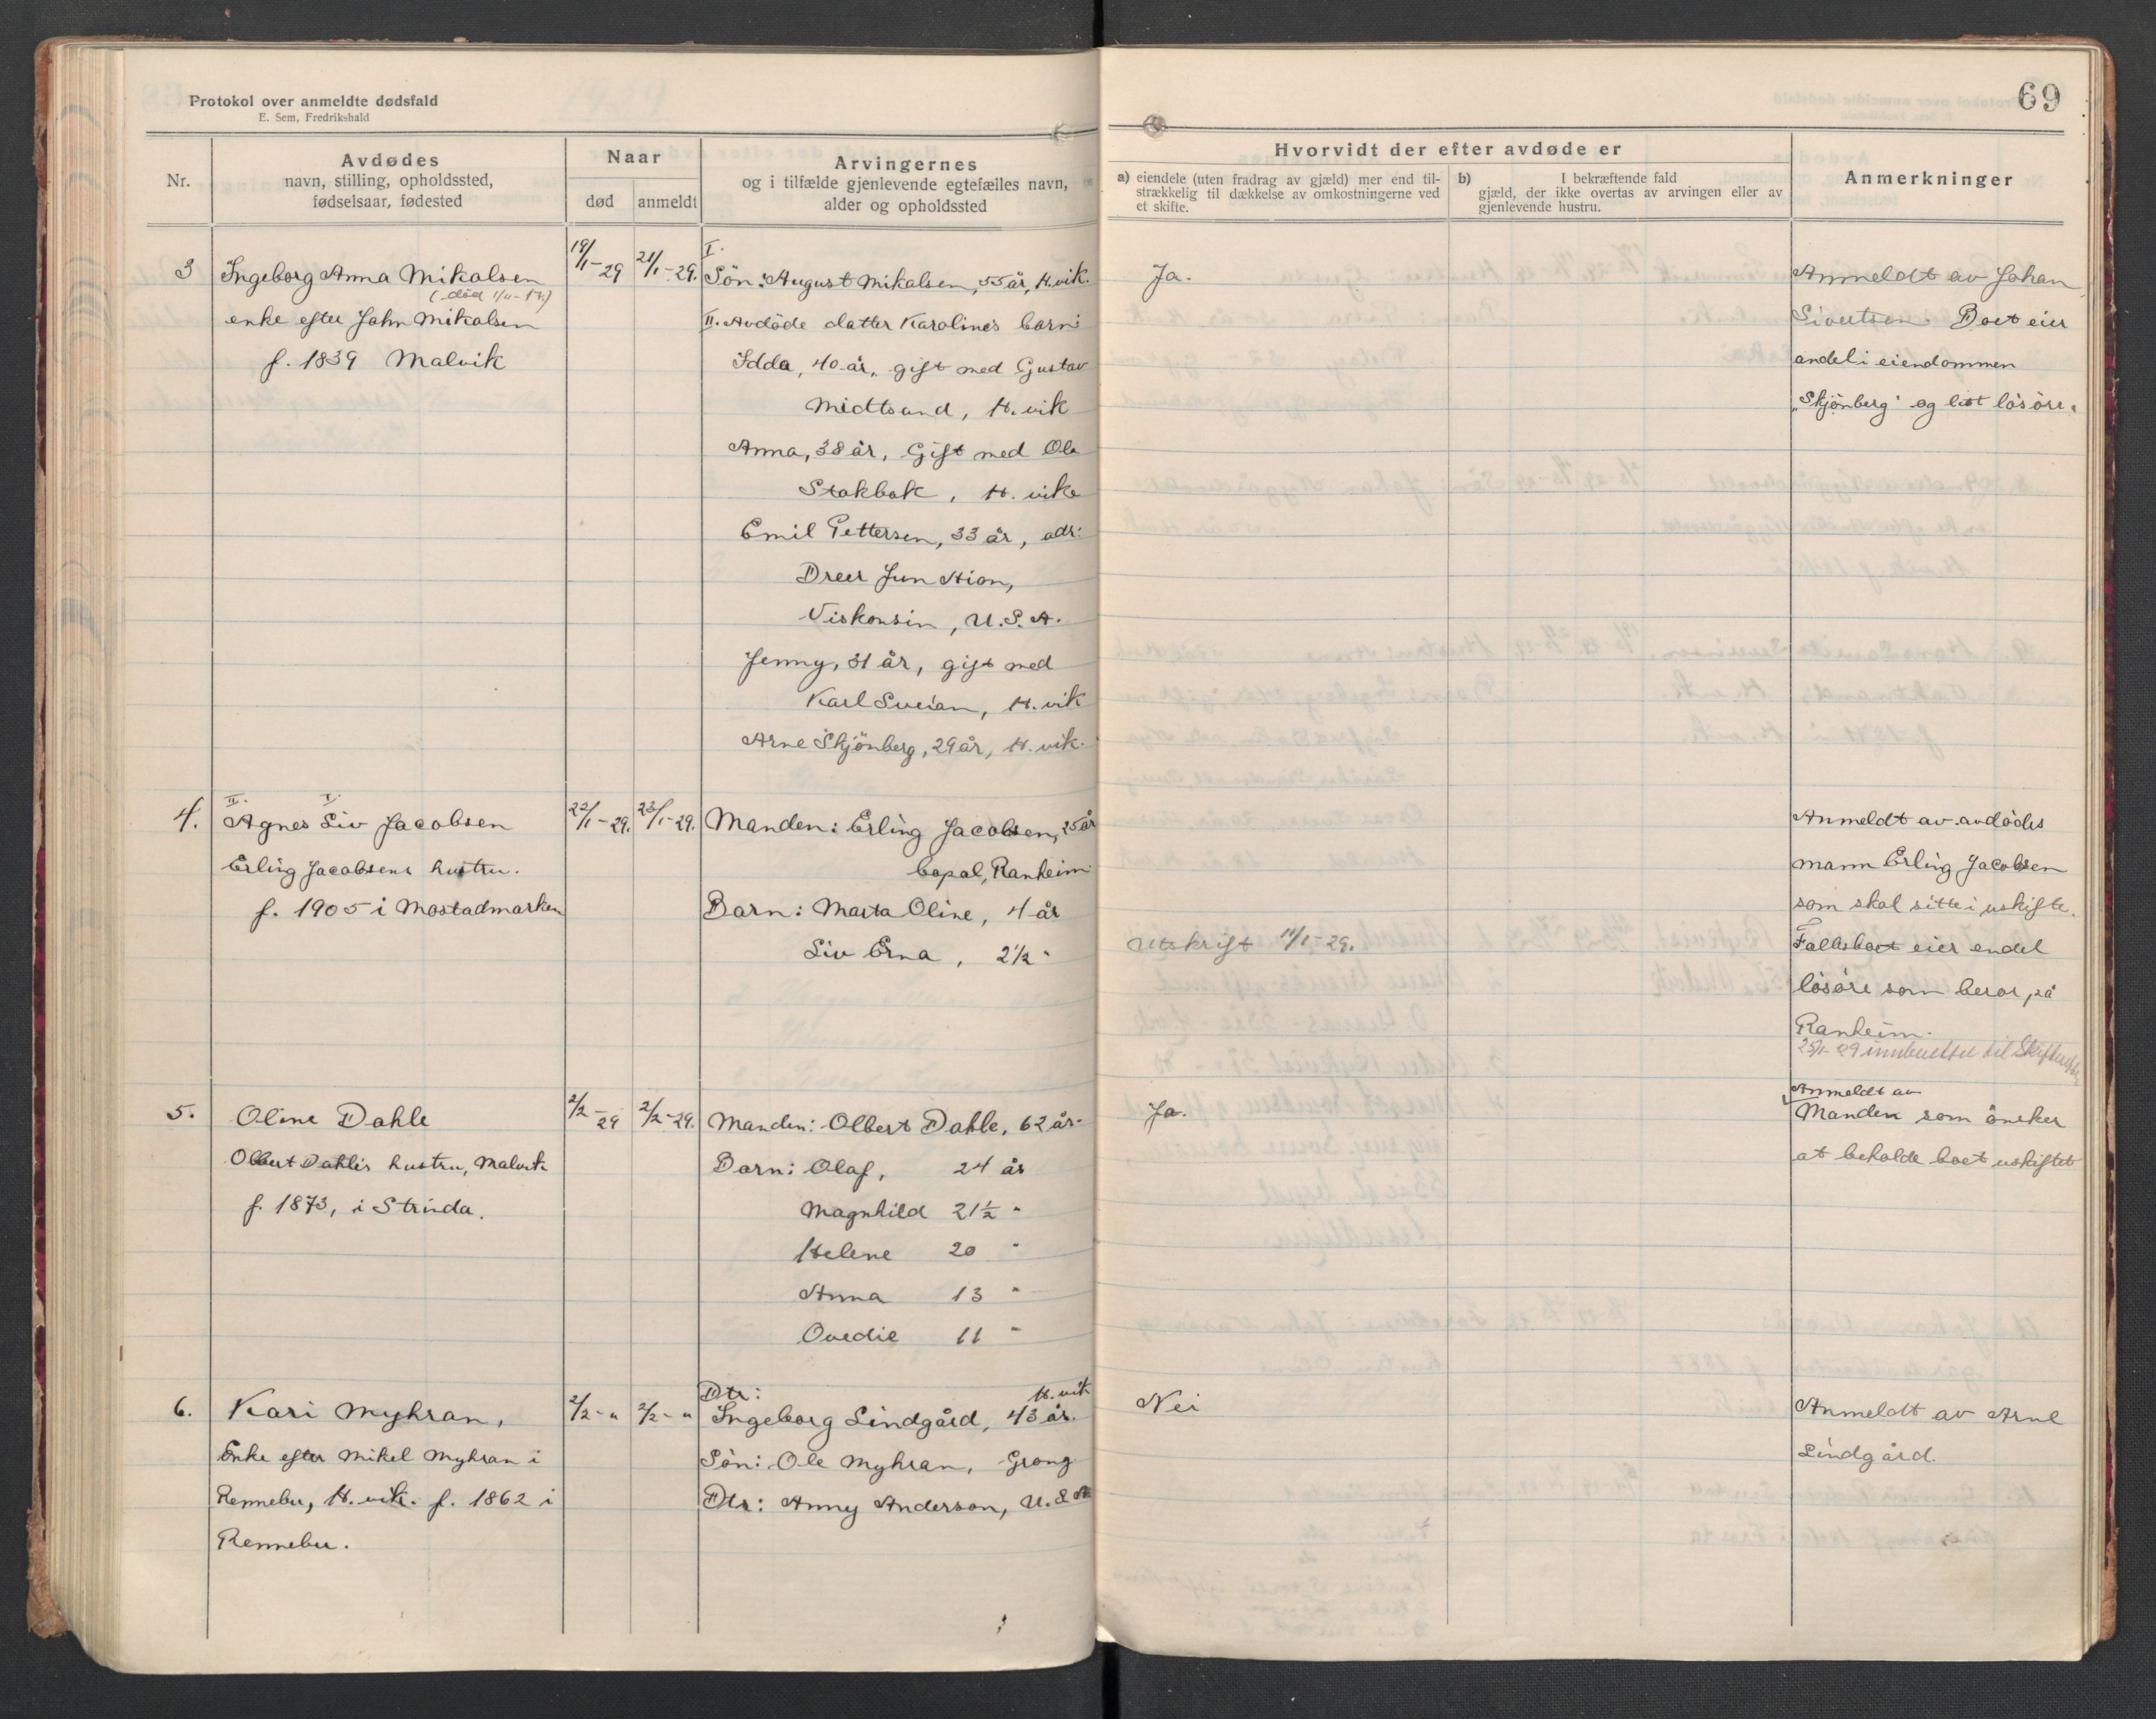 Protokol over anmeldte dødsfald
E. Sem, Fredrikshald
69
Nr.
Avdødes
navn, stilling, opholdssted,
fødselsaar, fødested
Naar
død
anmeldt
Arvingernes
og i tilfælde gjenlevende egtefælles navn,
alder og opholdssted
Hvorvidt der efter avdøde er
a) eiendele (uten fradrag av gjæld) mer end til-
strækkelig til dækkelse av omkostningerne ved
et skifte.
b) I bekræftende fald
gjæld, der ikke overtas av arvingen eller av
gjenlevende hustru.
Anmerkninger
3
Ingeborg Anna Mikalsen
(død 1/11-17.)
enke efter John Mikalsen
f. 1839 Malvik
19/1-29
21/1-29.
I.
Sön: August Mikalsen, 55 år, H.vik.
II. Avdöde datter Karolines barn:
Idda, 40 år, gift med Gustav
Midtsand, H.vik
Anna, 38 år, Gift med Ole
Stokbak, H.vike
Emil Pettersen, 33 år, adr:
Dreer Junktion,
Viskonsin, U.S.A.
Jenny, 31 år, gift med
Karl Sveian, H.vik
Arne Skjönberg, 29 år, H.vik.
Ja.
Anmeldt av Johan
Sivertsen. Boet eier
andel i eiendommen
"Skjönberg" og litt lösöre.
4.
II. I.
Agnes Liv Jacobsen
Erling Jacobsens hustru.
f. 1905 i Mostadmarken
22/1-29.
23/1-29.
Manden: Erling Jacobsen, 25 år
Ranheim
Barn: Marta Oline, 4 år
Liv Erna, 2 1/2 "
Utskrift 11/1-29.
Anmeldt av avdödes
mann Erling Jacobsen
som skal sitte i uskifte.
Fællesboet eier endel
lösöre som beror på
Ranheim.
25/1-29 innberettet til
5.
Oline Dahle
Olbert Dahles hustru, Malvik
f. 1873, i Strinda.
2/2-29
2/2-29.
Manden: Olbert Dahle, 62 år-
Barn: Olaf, 24 år
Magnhild 21 1/2 "
Helene 20 "
Anna 13 "
Ovedie 11 "
Ja.
Anmeldt av
Manden som önsker
at beholde boet uskiftet
6.
Kari Myhran,
Enke efter Mikel Myhran i
Rennebu, H.vik. f. 1862 i
Rennebu.
2/2-"
2/2-"
Dtr: H.vik
Ingeborg Lindgård, 43 år.
Sön: Ole Myhran, Grong
Dtr: Anny Anderson, U.S.A
Nei
Anmeldt av Arne
Lindgård.